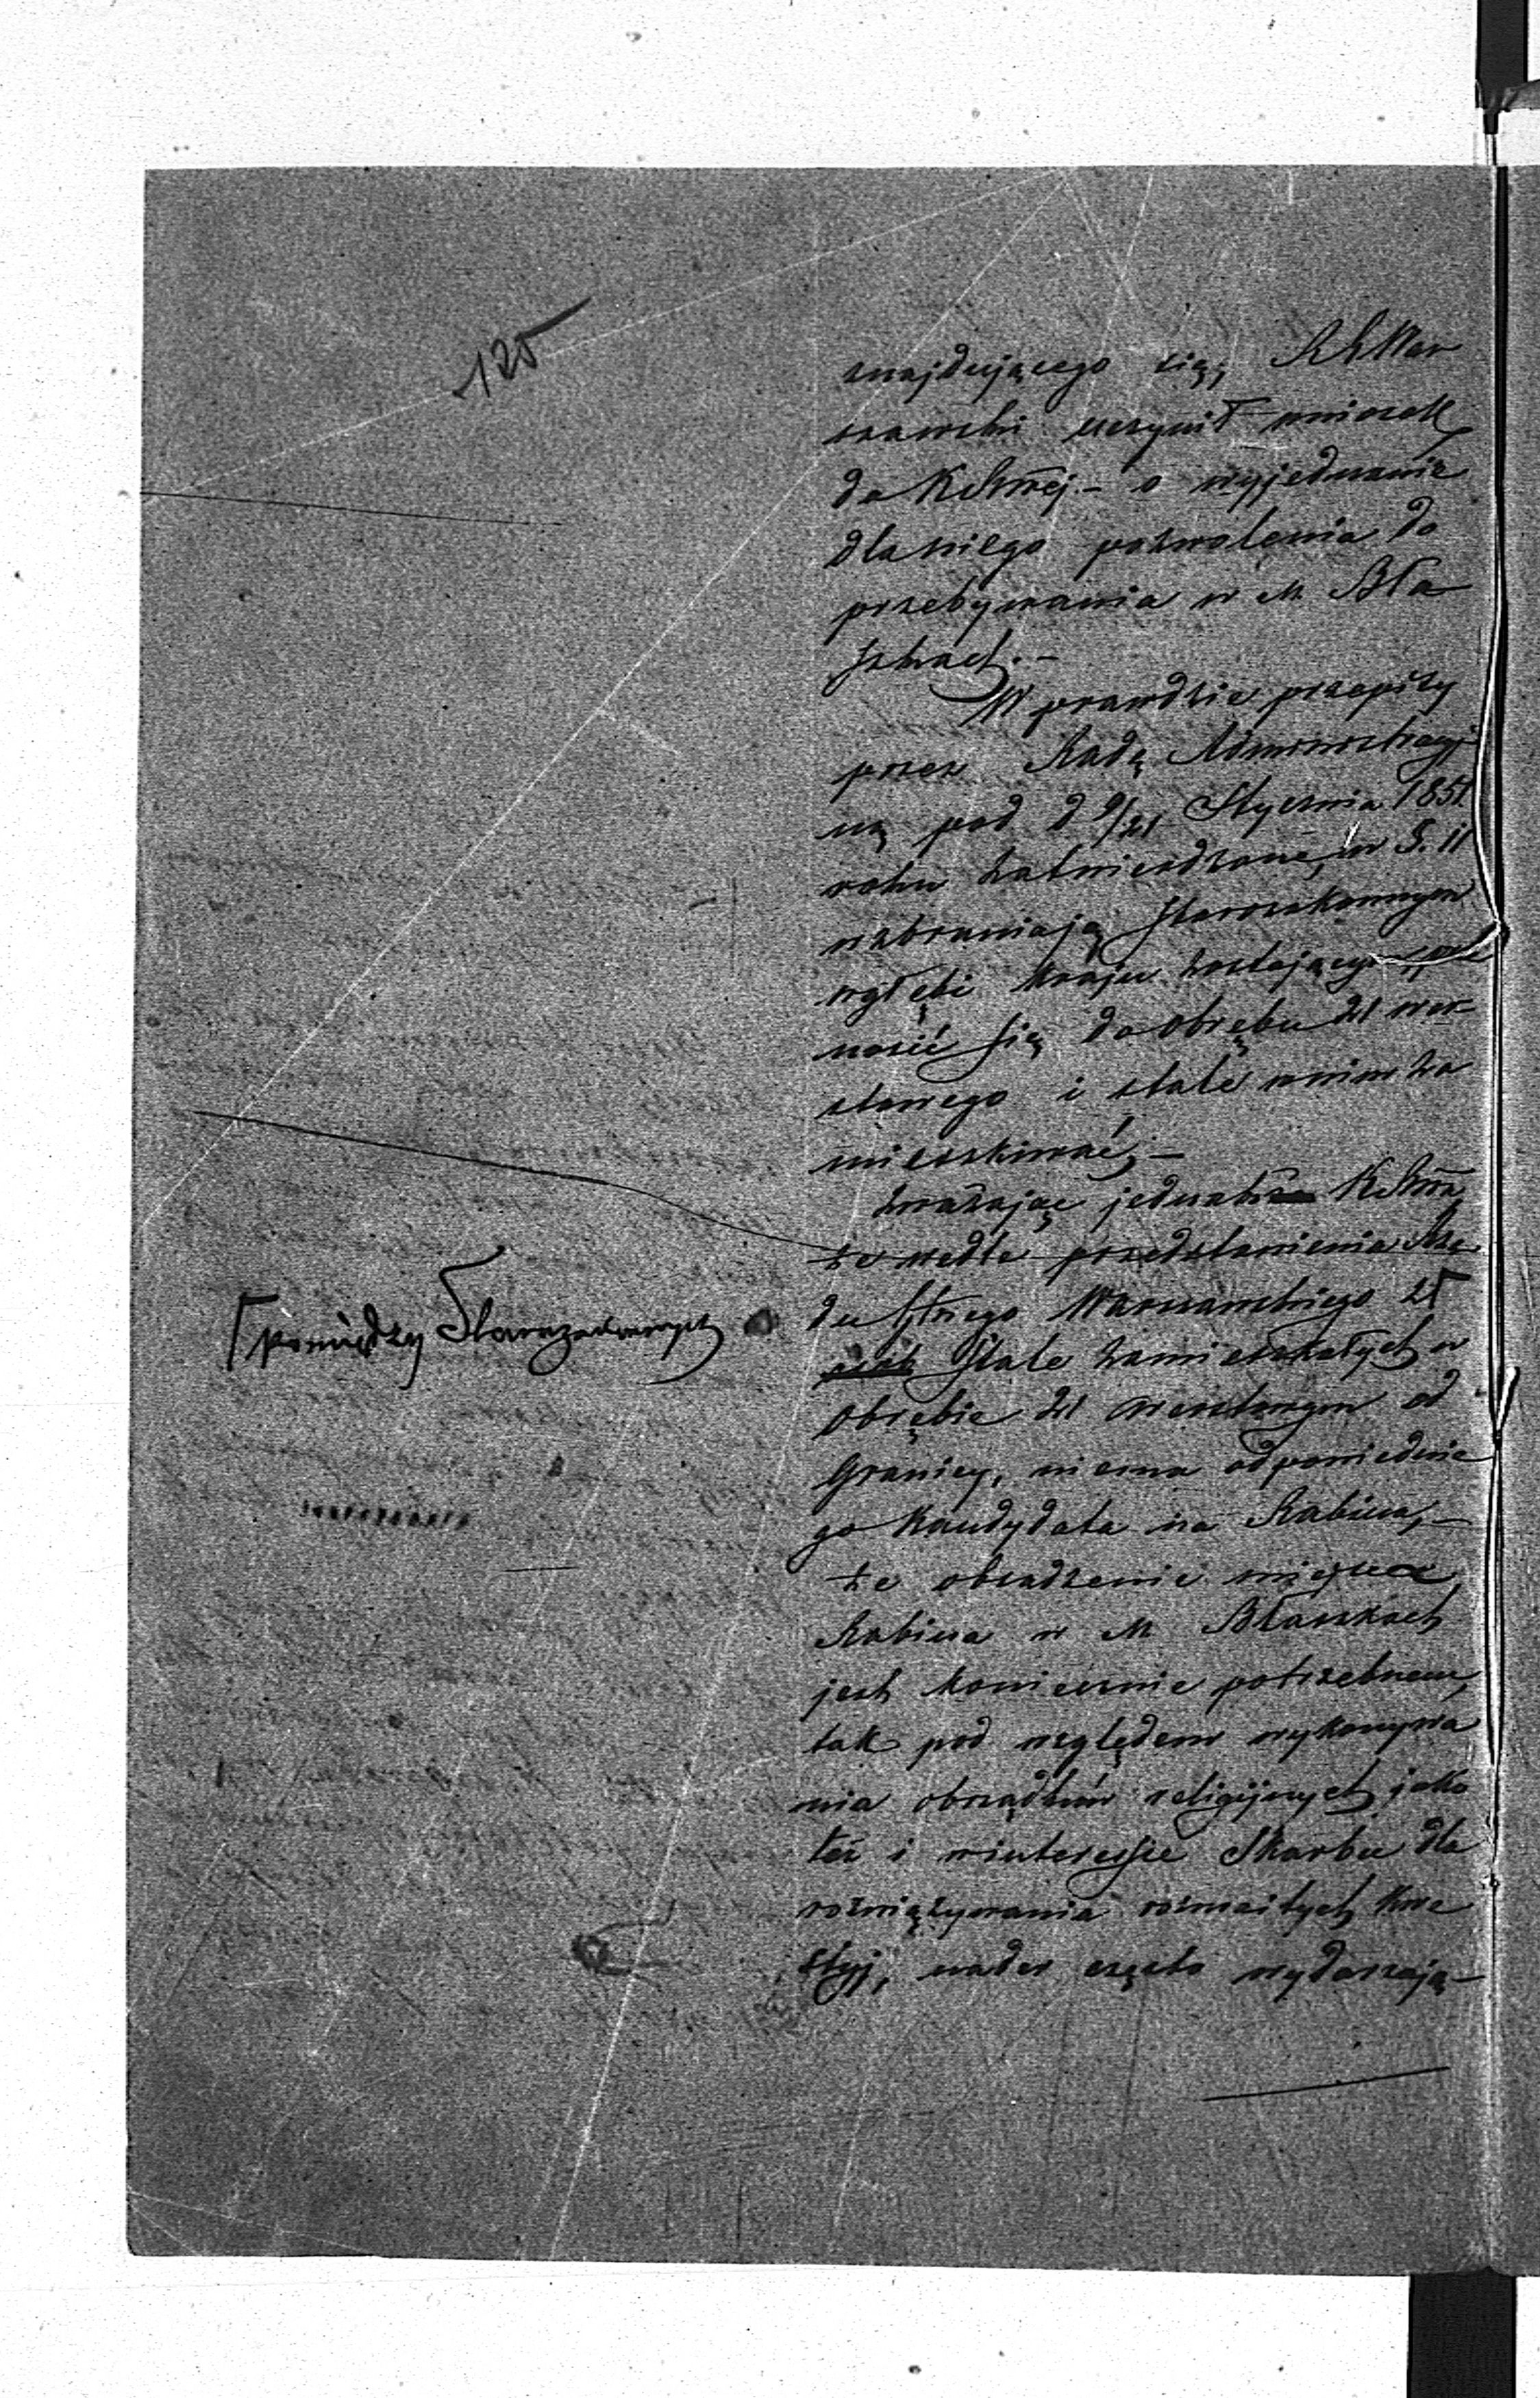 125
znajdującego się, RG War
szawski uczynił wniosek
do KRSWej. – o wyjednanie
dla niego pozwolenia do
przebywania w M Bła
szkach. –
W prawdzie przepisy
przez Radę Administracyj
ną pod d 9/21 Stycznia 1851
roku zatwierdzone, w §. 11
wzbraniają Starozakonnym
wgłębi Kraju zostającym, prze
nosić się do obrębu 21 wior
stowego i stale w nim za
mieszkiwać; –
zważając jednak KRSWa,
że wedle przedstawienia Rzą
du Głnego Warszawskiego
osób stale zamieszkałych w
Obrębie 21 wiorstowym od
Granicy, niema odpowiednie
go Kandydata na Rabina, –
że obsadzenie miejsca
Rabina w M Błaszkach
jest koniecznie potrzebnem,
tak pod względem wykonywa
nia obrządków religijnych jako
też i w interessie Skarbu dla
rozwiązywania rozmaitych kwe
styj, nader często wydarzają–
pomiędzy Starozakonnych